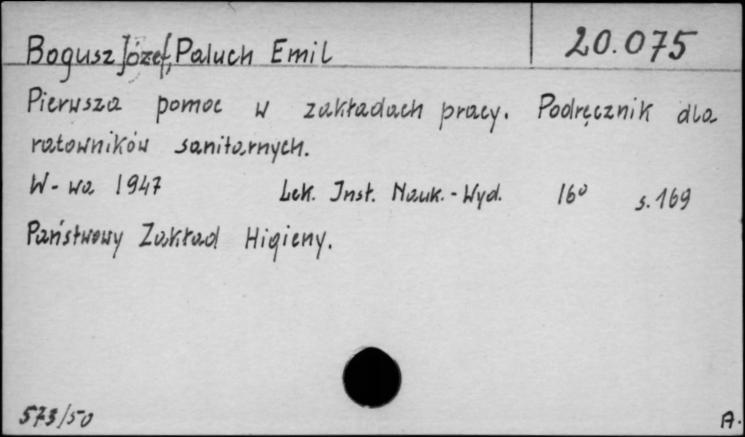 Bogusz Józef, Paluch Emil 20.075
Pierwsza pomoc w zakładach pracy. Podręcznik dla
ratowników sanitarnych.
W-wa 1947 Lek. Inst. Nauk.-Wyd. 16° s. 169
Państwowy Zakład Higieny.
573/50 A.